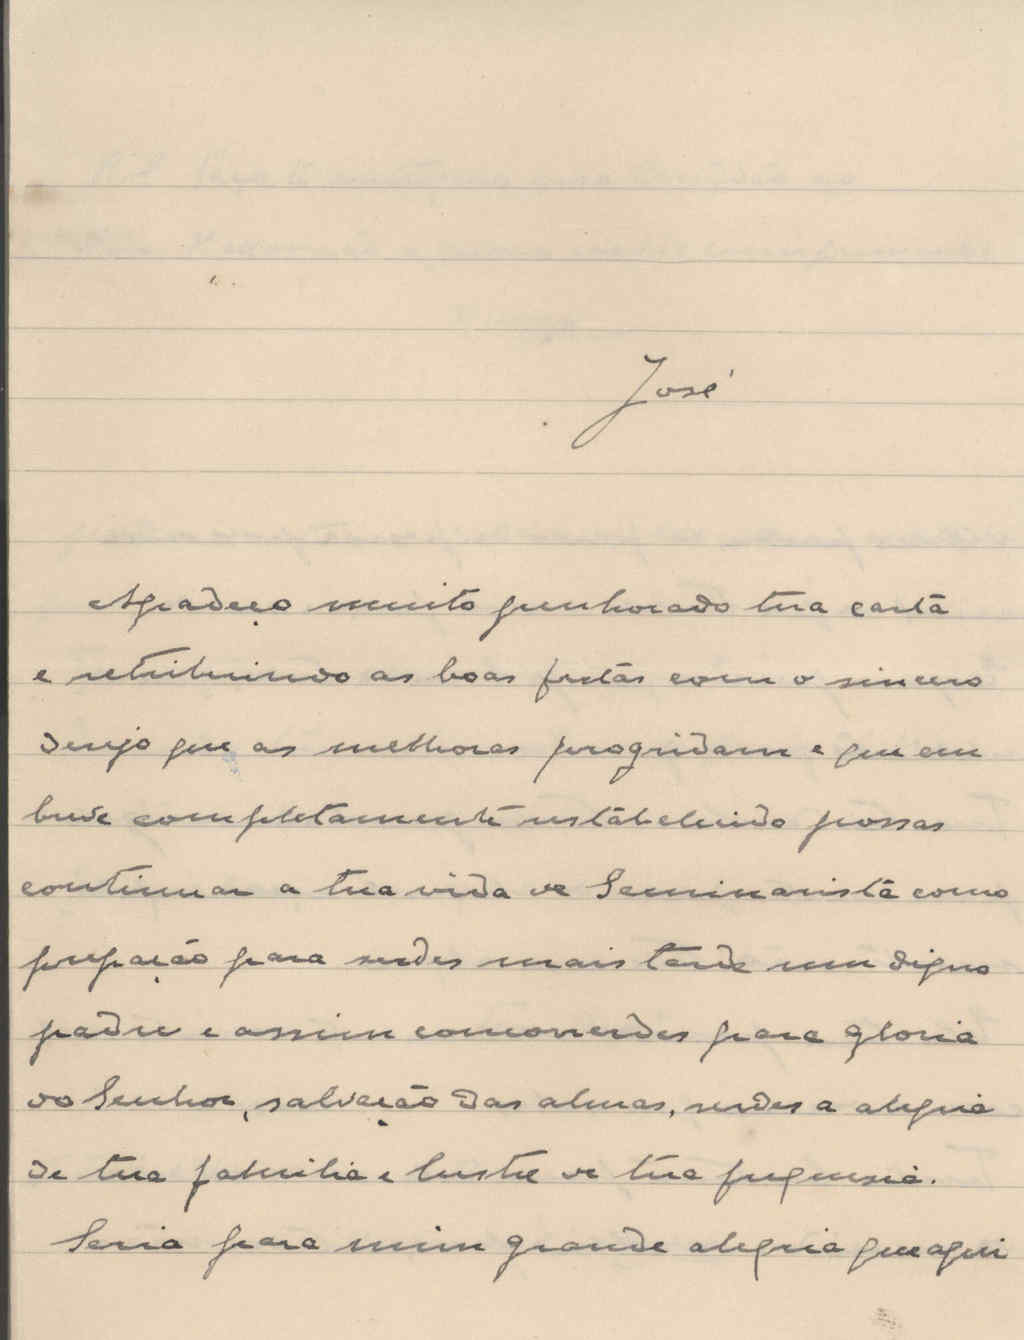 José
Agradeço muito penhorado tua carta
e retribuindo as boas festas com o sincero
desejo que as melhoras progridam e que em
breve completamente restabelecido possas
continuar a tua vida de Seminarista como
preparação para serdes mais tarde um digno
padre e assim concorrerdes para gloria
do Senhor, salvação das almas, serdes a alegria
de tua familia e lustre de tua freguesia.
Seria para mim grande alegria que aqui